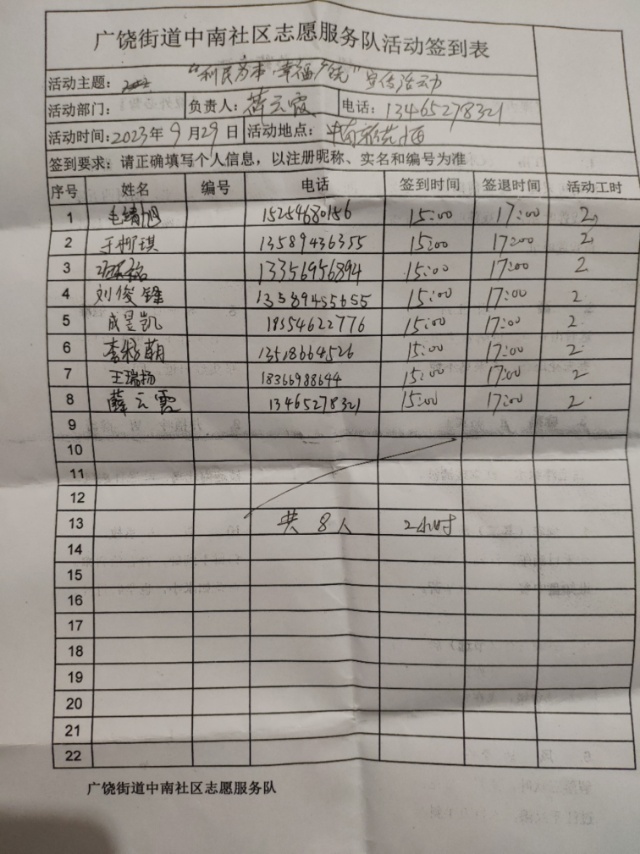 广饶街道中南社区志愿服务队活动签到表
活动主题: "利民为本·幸福广饶"宣传活动
活动部门: 负责人: 薛云霞 电话: 13465278321
活动时间: 2023年9月29日 活动地点:
签到要求: 请正确填写个人信息，以注册昵称、实名和编号为准
序号 姓名 编号 电话 签到时间 签退时间 活动工时
1 15254680156 15:00 17:00 2
2 13589436355 15:00 17:00 2
3 13356956894 15:00 17:00 2
4 刘俊锋 13589455655 15:00 17:00 2
5 成昱凯 18354622776 15:00 17:00 2
6 13518664526 15:00 17:00 2
7 王瑞扬 18366988644 15:00 17:00 2
8 薛云霞 13465278321 15:00 17:00 2
9
10
11
12
13 共8人 2小时
14
15
16
17
18
19
20
21
22
广饶街道中南社区志愿服务队